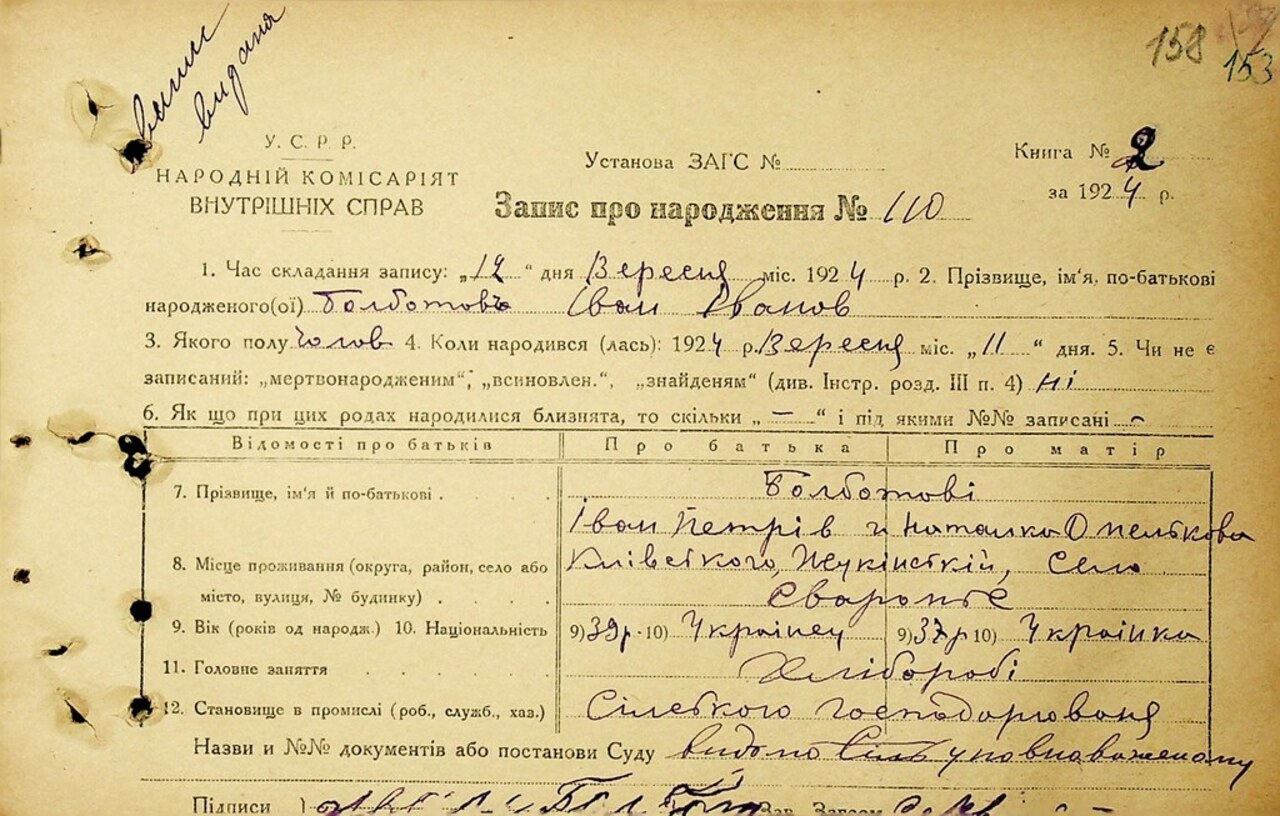 випис
видана
158
153
У. С. Р. Р.
НАРОДНІЙ КОМІСАРІЯТ
ВНУТРІШНІХ СПРАВ
Установа ЗАГС №
Книга № 2
за 1924 р.
Запис про народження № 110
1. Час складання запису: „12“ дня Вересня міс. 1924 р. 2. Прізвище, ім'я, по-батькові
народженого(ої) Болботовъ Іван Іванов
3. Якого полу чолов 4. Коли народився (лась): 1924 р. Вересня міс. „11“ дня. 5. Чи не є
записаний: „мертвонародженим“, „всиновлен.“, „знайденям“ (див. Інстр. розд. III п. 4) ні
6. Як що при цих родах народилися близнята, то скільки „—“ і під якими №№ записані —
Відомості про батьків Про батька Про матір
7. Прізвище, ім'я й по-батькові Болботові
Іван Петрів и Наталка Омелькова
8. Місце проживання (округа, район, село або Київського, Жукінській, Село
місто, вулиця, № будинку) Сваромьє
9. Вік (років од народж.) 10. Національність 9) 39 р. 10) Українец 9) 37 р 10) Українка
11. Головне заняття Хлібороби
12. Становище в промислі (роб., служб., хаз.) Сільського господарюваня
Назви и №№ документів або постанови Суду видомо уповноваженому
Підписи Зав. Загсом